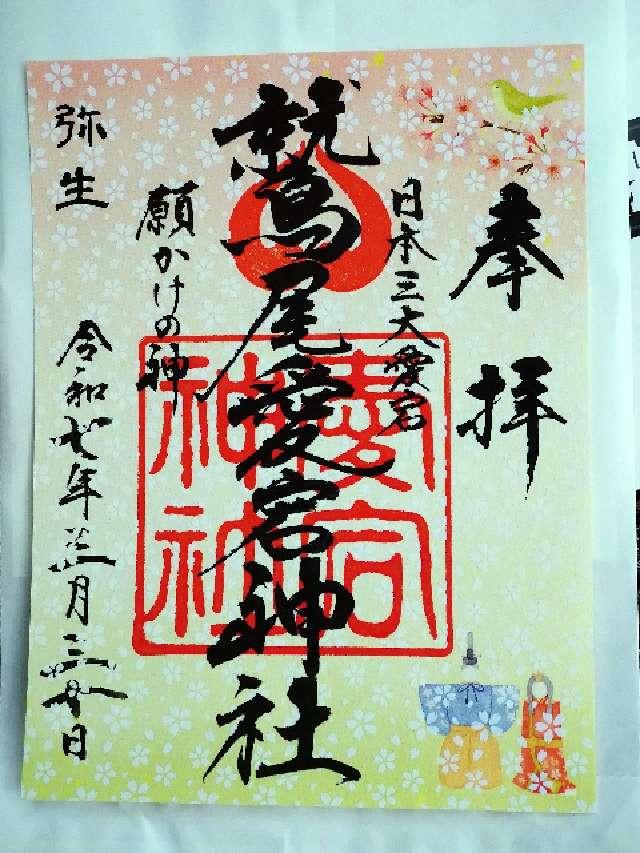 奉拝
日本三大愛宕
鷲尾愛宕神社
愛宕
神社
願かけの神
弥生
令和七年三月三十日